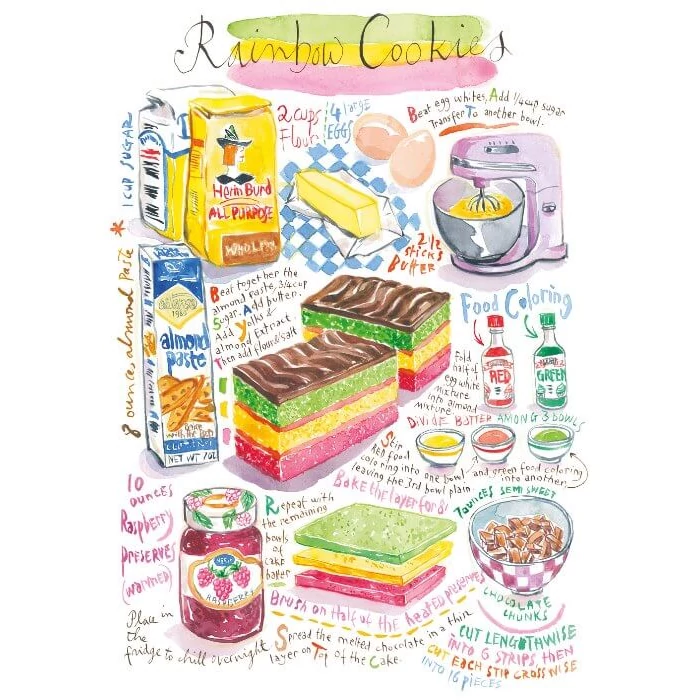 Rainbow Cookies
1 CUP SUGAR
2 cups
Flour
4 large
EGGS
Beat egg whites, Add 1/4 cup sugar
Transfer To another bowl.
ALL PURPOSE
2 1/2
sticks
BUTTER
* 8 ounces almond paste
almond
paste
NET WT 7OZ
Beat together the
almond paste, 3/4 cup
Sugar. Add butter.
Add yolks &
almond Extract
Then add flour & salt
Food Coloring
RED
GREEN
Fold
half of
egg white
mixture
into almond
mixture
DIVIDE BATTER AMONG 3 BOWLS
Stir
RED food
coloring into one bowl and green food coloring
leaving the 3rd bowl plain into another
Bake the layer for 8'
10
OUNCES
Raspberry
PRESERVES
(warmed)
RASPBERRY
Repeat with
the remaining
bowls
of
cake
batter
7 OUNCES SEMI SWEET
CHOCOLATE
CHUNKS
Brush on Half of the heated preserves
Place in
the
fridge to chill overnight
Spread the melted chocolate in a thin
layer on Top of the Cake.
CUT LENGTHWISE
INTO 6 STRIPS, THEN
CUT EACH STIP CROSSWISE
INTO 16 PIECES